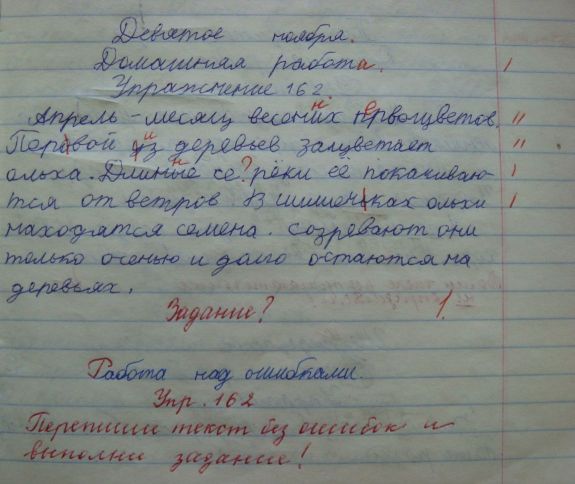 Девятое ноября.
Домашняя работа.
Упражнение 162.
Апрель - месяц весених первоцветов.
Перовой из деревьев зацветает
ольха. Длиные се? рёки её покачиваю-
тся от ветров В шишечьках ольхи
находятся семена. созревают они
только осенью и долго остаются на
деревьях.
Задание?
Работа над ошибками.
Упр. 162
Перепиши текст без ошибок и
выполни задание!